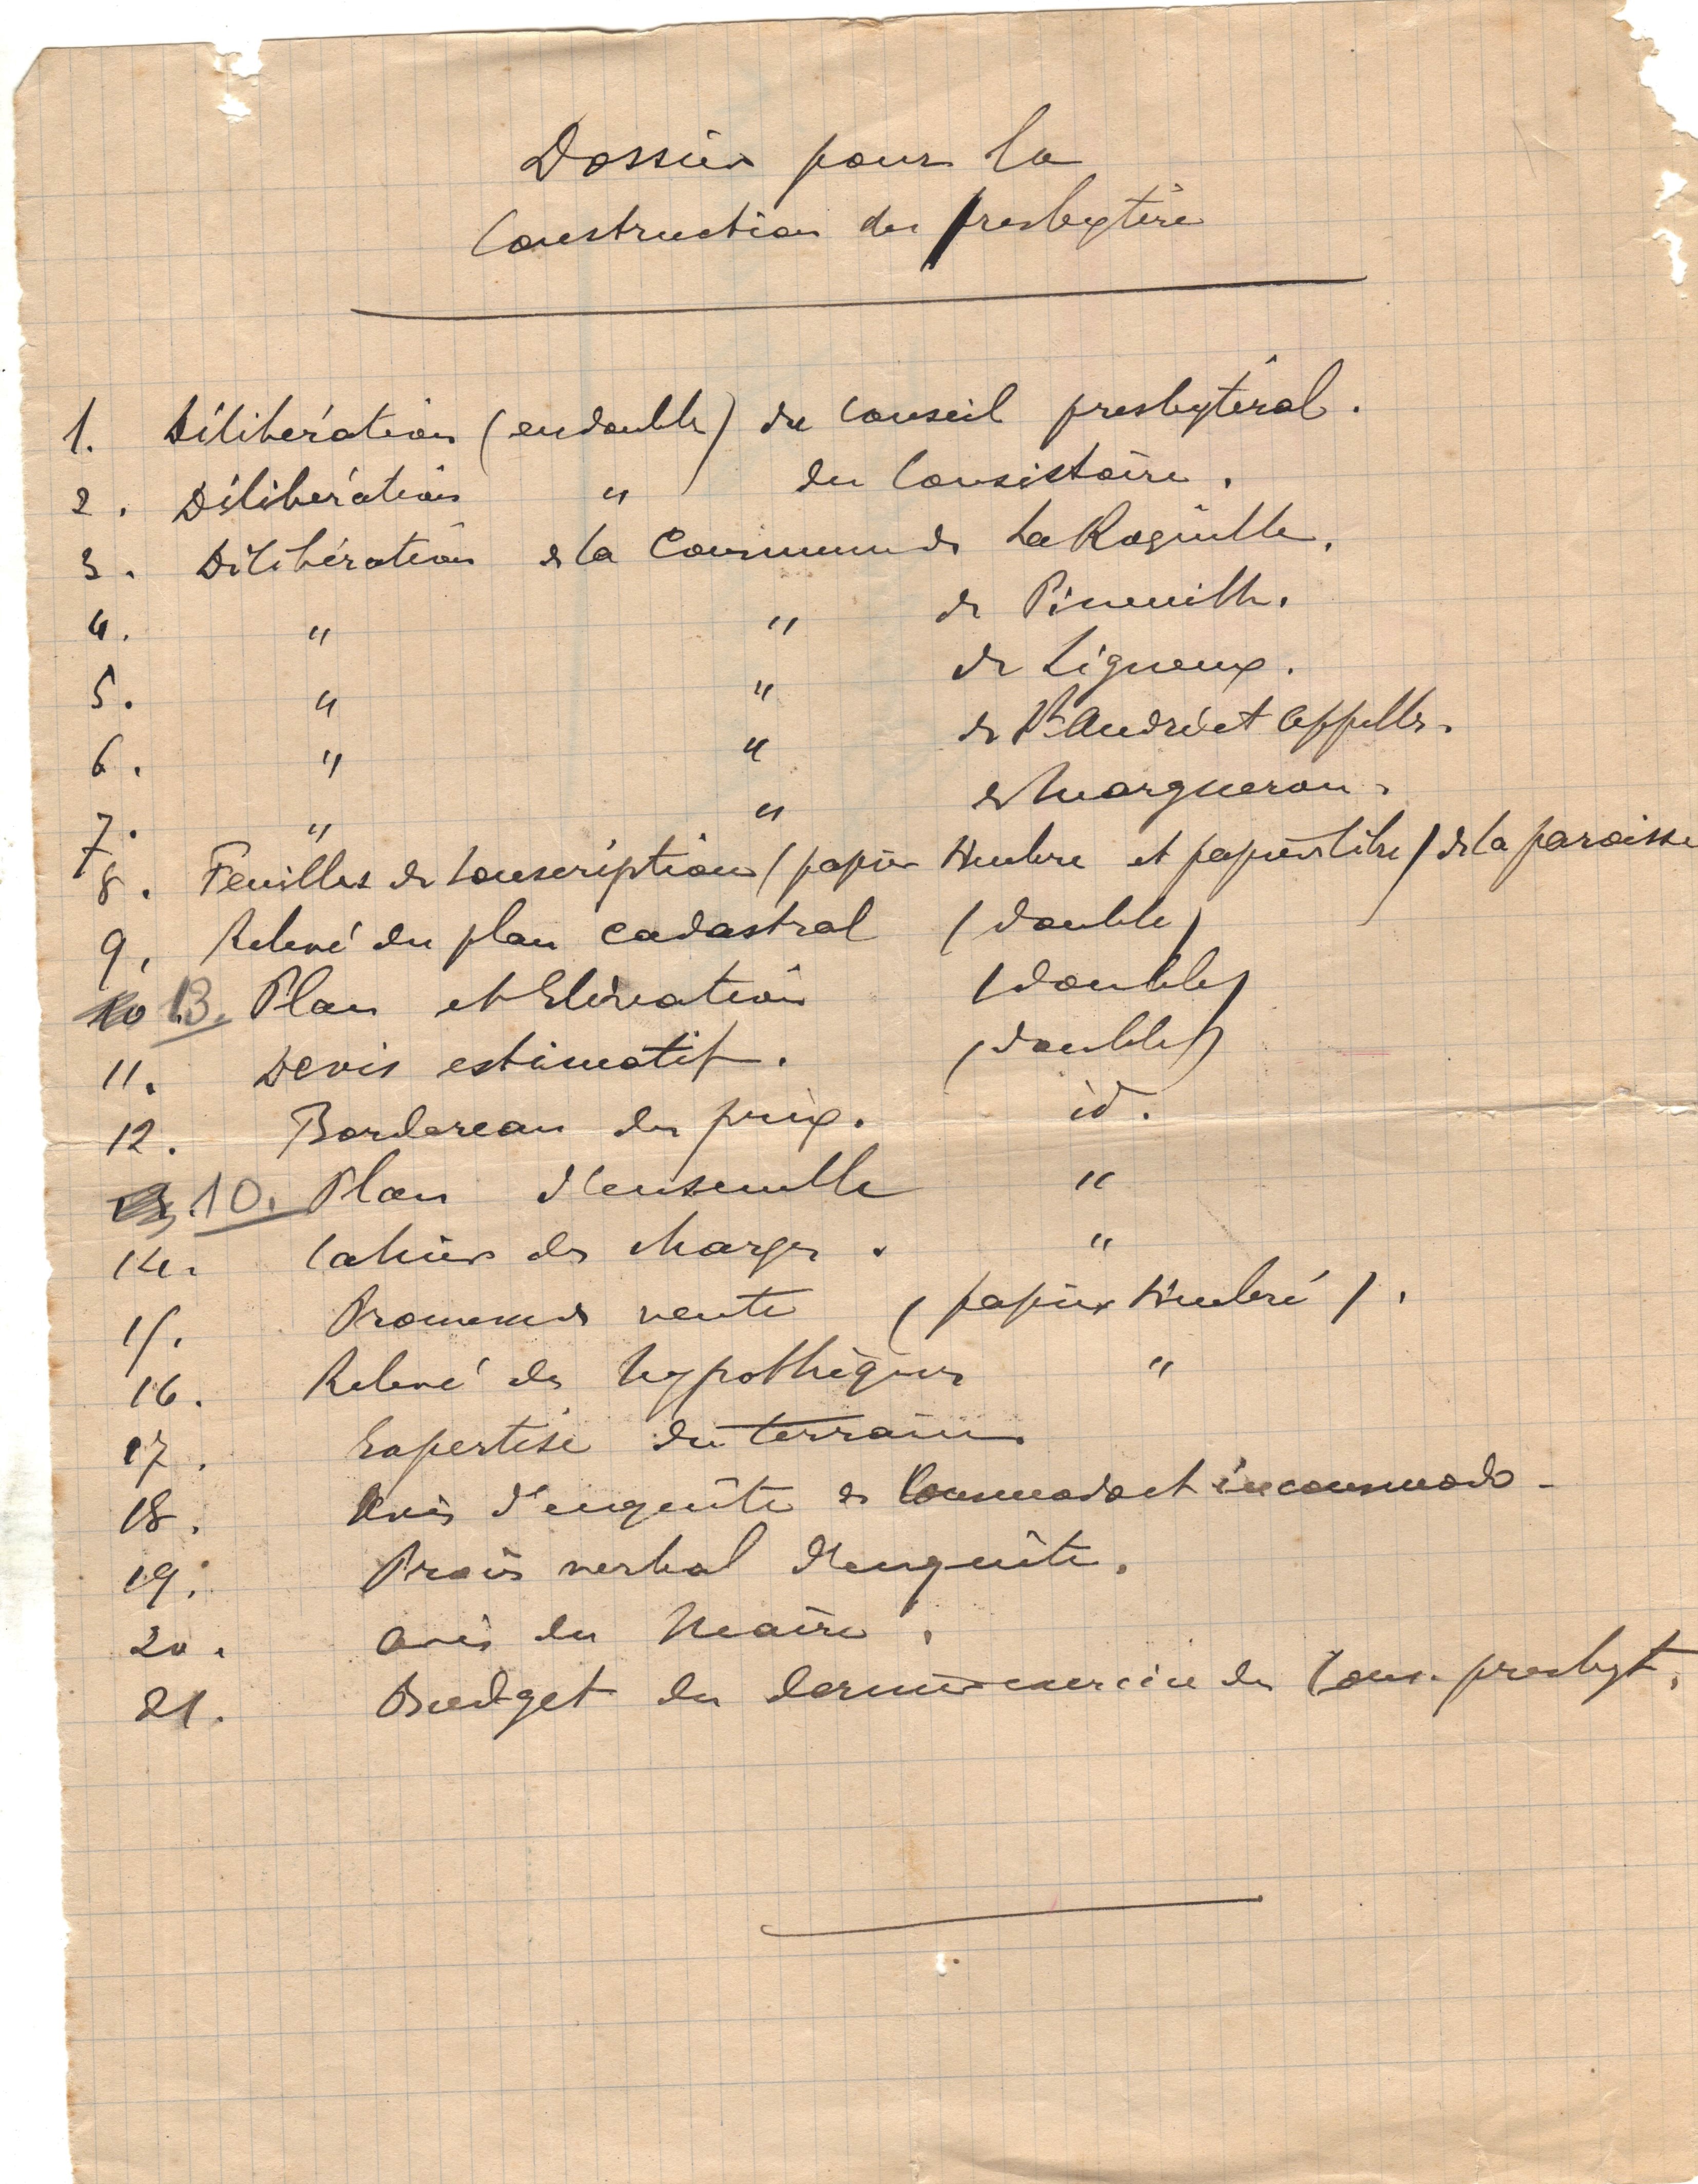 Dossier pour la
Construction du presbytère
1. Délibération (en double) du Conseil presbytéral.
2. Délibération " du Consistoire.
3. Délibération de la Commune de La Roquille.
4. " " de Pineuilh.
5. " " de Ligueux.
6. " " de St André et Appelles.
7. " " de Margueron.
8. Feuilles de souscription (papier timbre et papier libre) de la paroisse
9. Relevé du plan cadastral (double)
10 13. Plan et Elévation (double)
11. Devis estimatif. (double)
12. Bordereau des prix. id.
13 10. Plan d'ensemble "
14. Cahier des charges. "
15. Promesse de vente (papier timbré).
16. Relevé des hypothèques "
17. Expertise du terrain.
18. Avis d'enquête de Commodo et incommodo -
19. Procès verbal d'enquête.
20. Avis du Maire.
21. Budget du dernier exercice du Cons. presbyt.